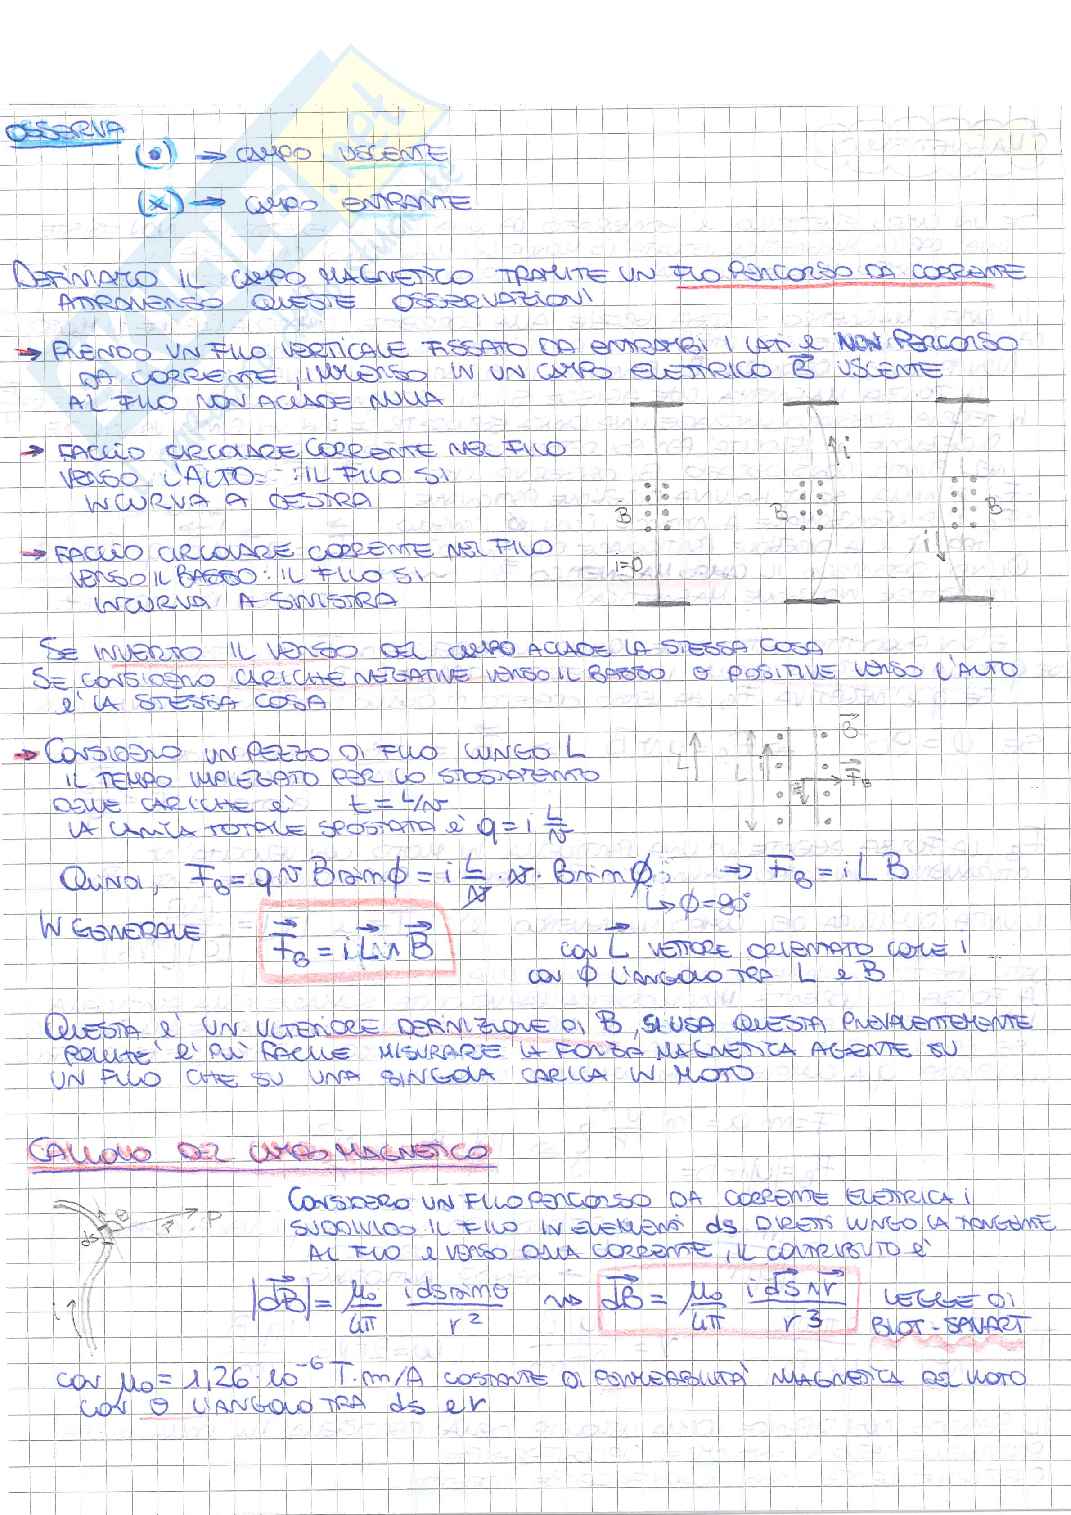 OSSERVA
(•) → CAMPO USCENTE
(x) → CAMPO ENTRANTE
DEFINIAMO IL CAMPO MAGNETICO TRAMITE UN FILO PERCORSO DA CORRENTE
ATTRAVERSO QUESTE OSSERVAZIONI
→ AVENDO UN FILO VERTICALE FISSATO DA ENTRAMBI I LATI E NON PERCORSO
DA CORRENTE, IMMERSO IN UN CAMPO ELETTRICO B⃗ USCENTE
AL FILO NON ACCADE NULLA
→ FACCIO CIRCOLARE CORRENTE NEL FILO
VERSO L'ALTO : IL FILO SI
INCURVA A DESTRA
→ FACCIO CIRCOLARE CORRENTE NEL FILO
VERSO IL BASSO: IL FILO SI
INCURVA A SINISTRA
B i=0
B i
B i
SE INVERTO IL VERSO DEL CAMPO ACCADE LA STESSA COSA
SE CONSIDERO CARICHE NEGATIVE VERSO IL BASSO O POSITIVE VERSO L'ALTO
E' LA STESSA COSA
→ CONSIDERO UN PEZZO DI FILO LUNGO L
IL TEMPO IMPIEGATO PER LO SPOSTAMENTO
DELLE CARICHE E' t = L/v
LA CARICA TOTALE SPOSTATA E' q = i L/v
L L i B⃗ F⃗B
QUINDI, FB = qvB sin φ = i L/v · v · B sin φ ; ⇒ FB = iLB
↳ φ=90°
IN GENERALE F⃗B = i L⃗ ∧ B⃗ CON L⃗ VETTORE ORIENTATO COME i
CON φ L'ANGOLO TRA L E B
QUESTA E' UN ULTERIORE DEFINIZIONE DI B, SI USA QUESTA PREVALENTEMENTE
POICHE' E' PIU' FACILE MISURARE LA FORZA MAGNETICA AGENTE SU
UN FILO CHE SU UNA SINGOLA CARICA IN MOTO
CALCOLO DEL CAMPO MAGNETICO
ds θ r⃗ P i
CONSIDERO UN FILO PERCORSO DA CORRENTE ELETTRICA i
SUDDIVIDO IL FILO IN ELEMENTI ds DIRETTI LUNGO LA TANGENTE
AL FILO E VERSO DELLA CORRENTE, IL CONTRIBUTO E'
|dB⃗| = μ0/4π i ds sin θ/r² ⇝ dB⃗ = μ0/4π i ds⃗ ∧ r⃗/r³ LEGGE DI
BIOT-SAVART
CON μ0 = 1,26·10⁻⁶ T·m/A COSTANTE DI PERMEABILITA' MAGNETICA DEL VUOTO
CON θ L'ANGOLO TRA ds E r